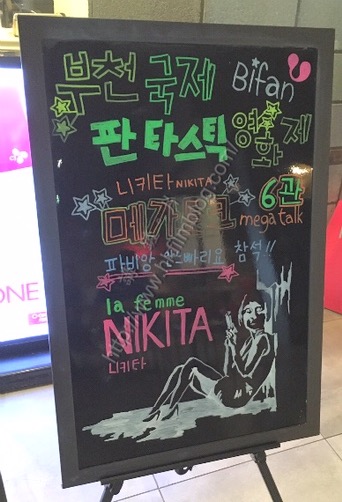 부천 국제 Bifan
판타스틱 영화제
니키타 NIKITA 6관
메가토크 mega talk
파비앙 안느빠리요 참석!!
la femme
NIKITA
니키타
ONE